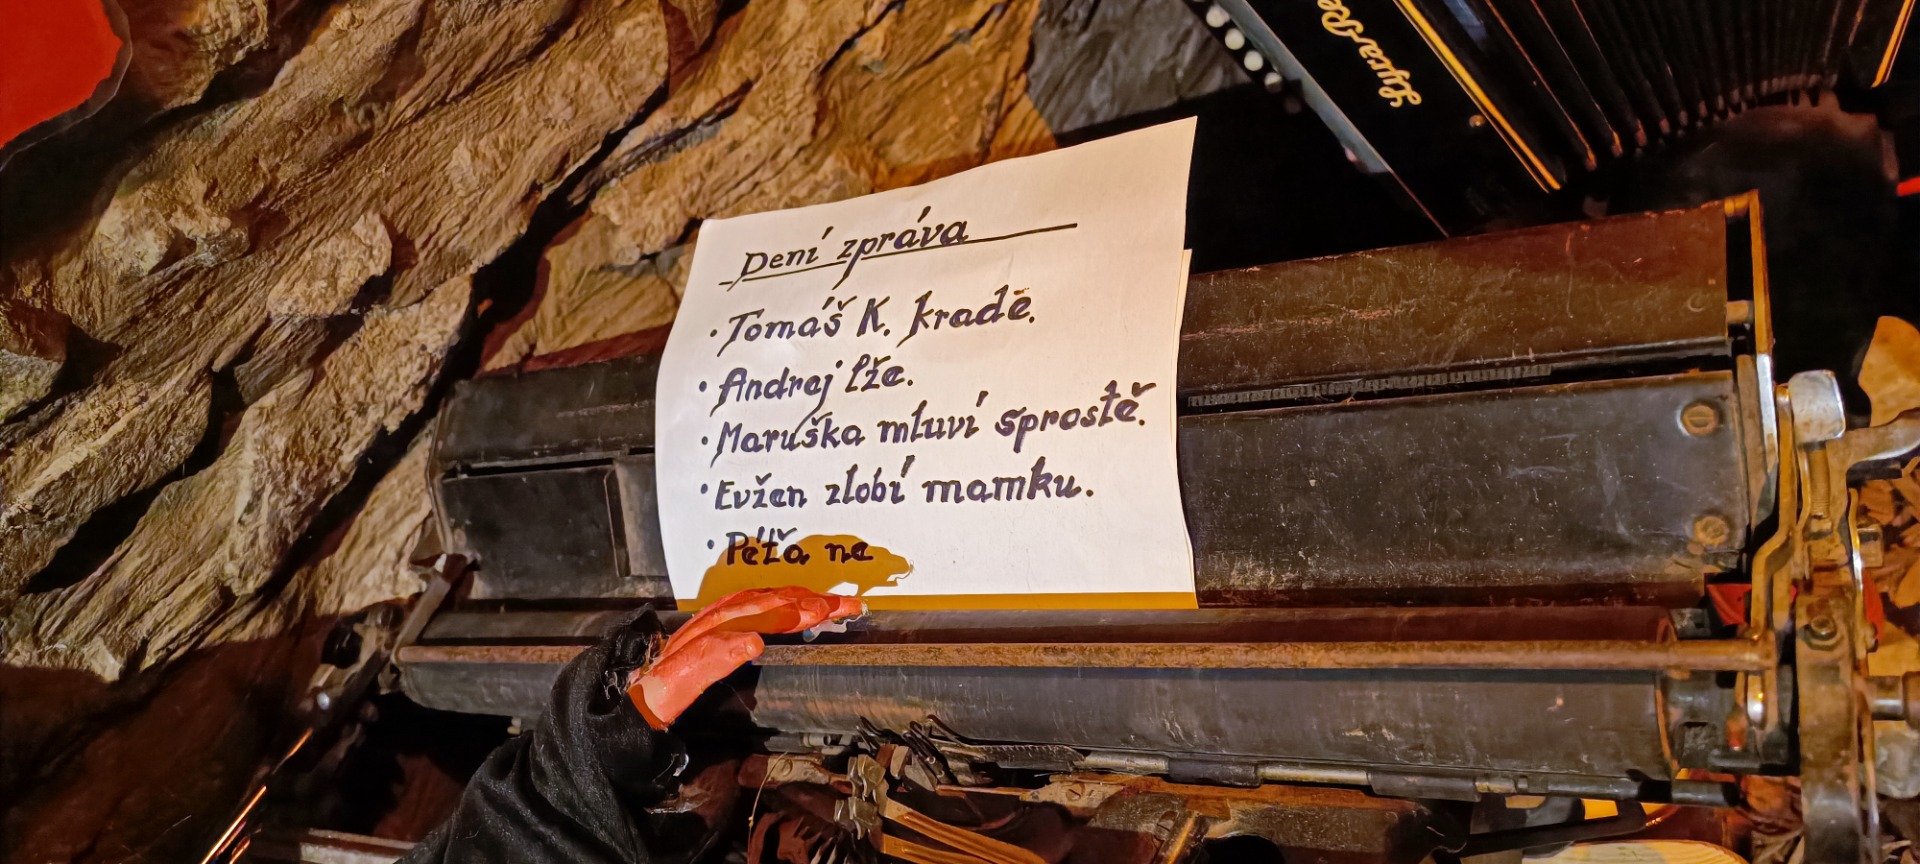 Dení zpráva
• Tomáš K. krade.
• Andrej lže.
• Maruška mluví sprostě.
• Evžen zlobí mamku.
• Péťa ne